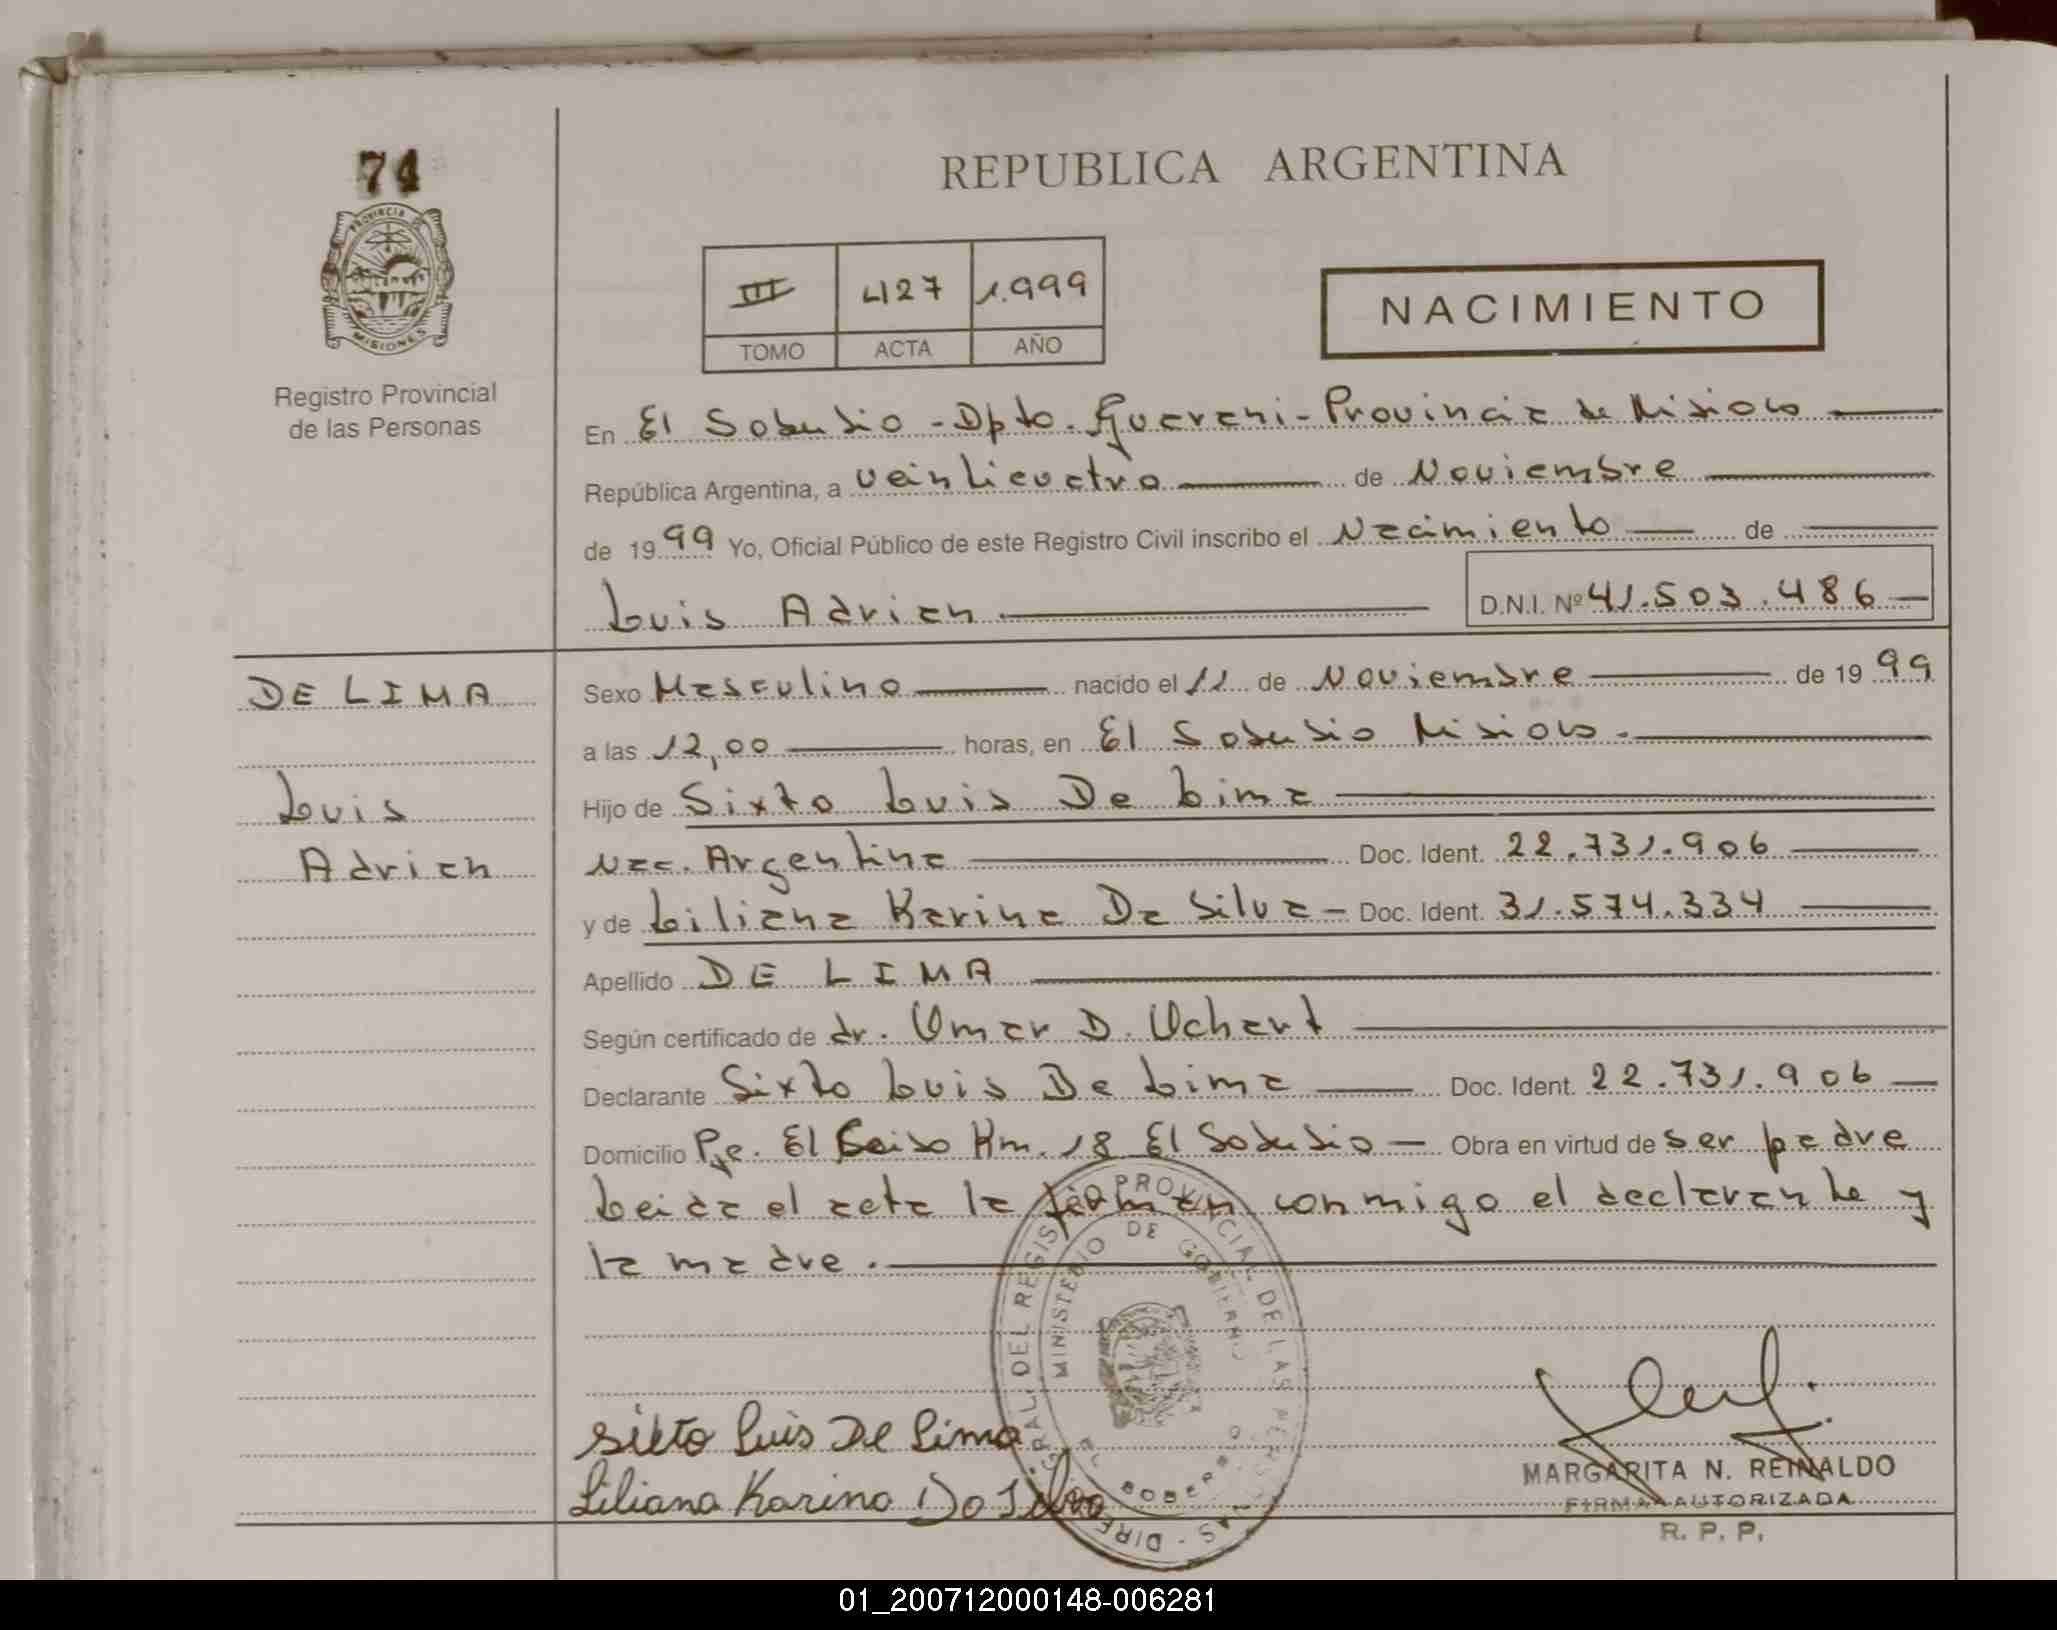 74
PROVINCIA DE
MISIONES
Registro Provincial
de las Personas
REPUBLICA ARGENTINA
III 427 1.999
TOMO ACTA AÑO
NACIMIENTO
En El Soberbio - Dpto. Guarani - Provincia de Misiones
República Argentina, a veinticuatro de Noviembre
de 1999 Yo, Oficial Público de este Registro Civil inscribo el Nacimiento de
Luis Adrian D.N.I. Nº 41.503.486
DE LIMA
Luis
Adrian
Sexo Masculino nacido el 11 de Noviembre de 1999
a las 12,00 horas, en El Soberbio Misiones.
Hijo de Sixto Luis De Lima
Nac. Argentina Doc. Ident. 22.731.906
y de Liliana Karina Da Silva - Doc. Ident. 31.574.334
Apellido DE LIMA
Según certificado de dr. Omar D. Uchart
Declarante Sixto Luis De Lima Doc. Ident. 22.731.906
Domicilio Pje. El Km. 18 El Soberbio - Obra en virtud de ser padre
Leida el acta la firman conmigo el declarante y
la madre.
DIRECCION GENERAL DEL REGISTRO PROVINCIAL DE LAS PERSONAS
MINISTERIO DE GOBIERNO
Sixto Luis De Lima
Liliana Karina Da Silva
MARGARITA N. REINALDO
FIRMA AUTORIZADA
R. P. P.
01_200712000148-006281